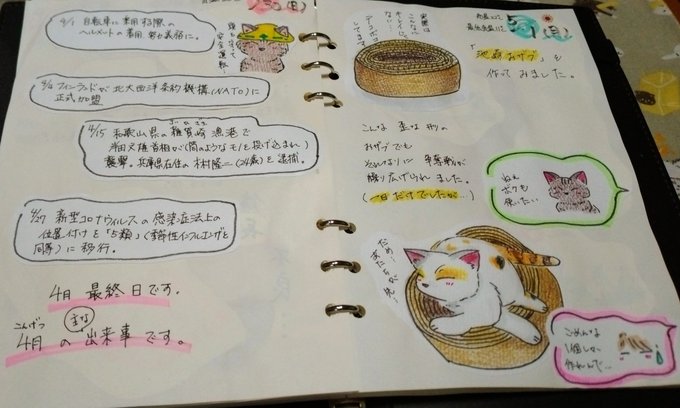 4/1 自転車に乗用する際の
ヘルメットの着用 努力義務に。
頭も守って
安全運転
4/4 フィンランドが北大西洋条約機構(NATO)に
正式加盟
4/15 和歌山県の雑賀崎漁港で
さいかざき
岸田文雄首相が(筒のようなモノを投げ込まれ)
襲撃。兵庫県在住の木村隆二(24歳)を逮捕。
4/27 新型コロナウィルスの感染症法上の
位置付けを「5類」(季節性インフルエンザと
同等)に移行。
4月 最終日です。
こんげつ
4月の主な出来事です。
実際は
こんなに
キレイに
データボロ
してます
「池座おザブ」を
作ってみました。
こんな 歪な形の
おザブでも
それなりに 争奪戦が
繰り広げられました。
(一日だけでしたが…)
ねぇ
ボクも
使いたい
だめ!
あたちが先…
ごめんな
1個しか
作れんで…